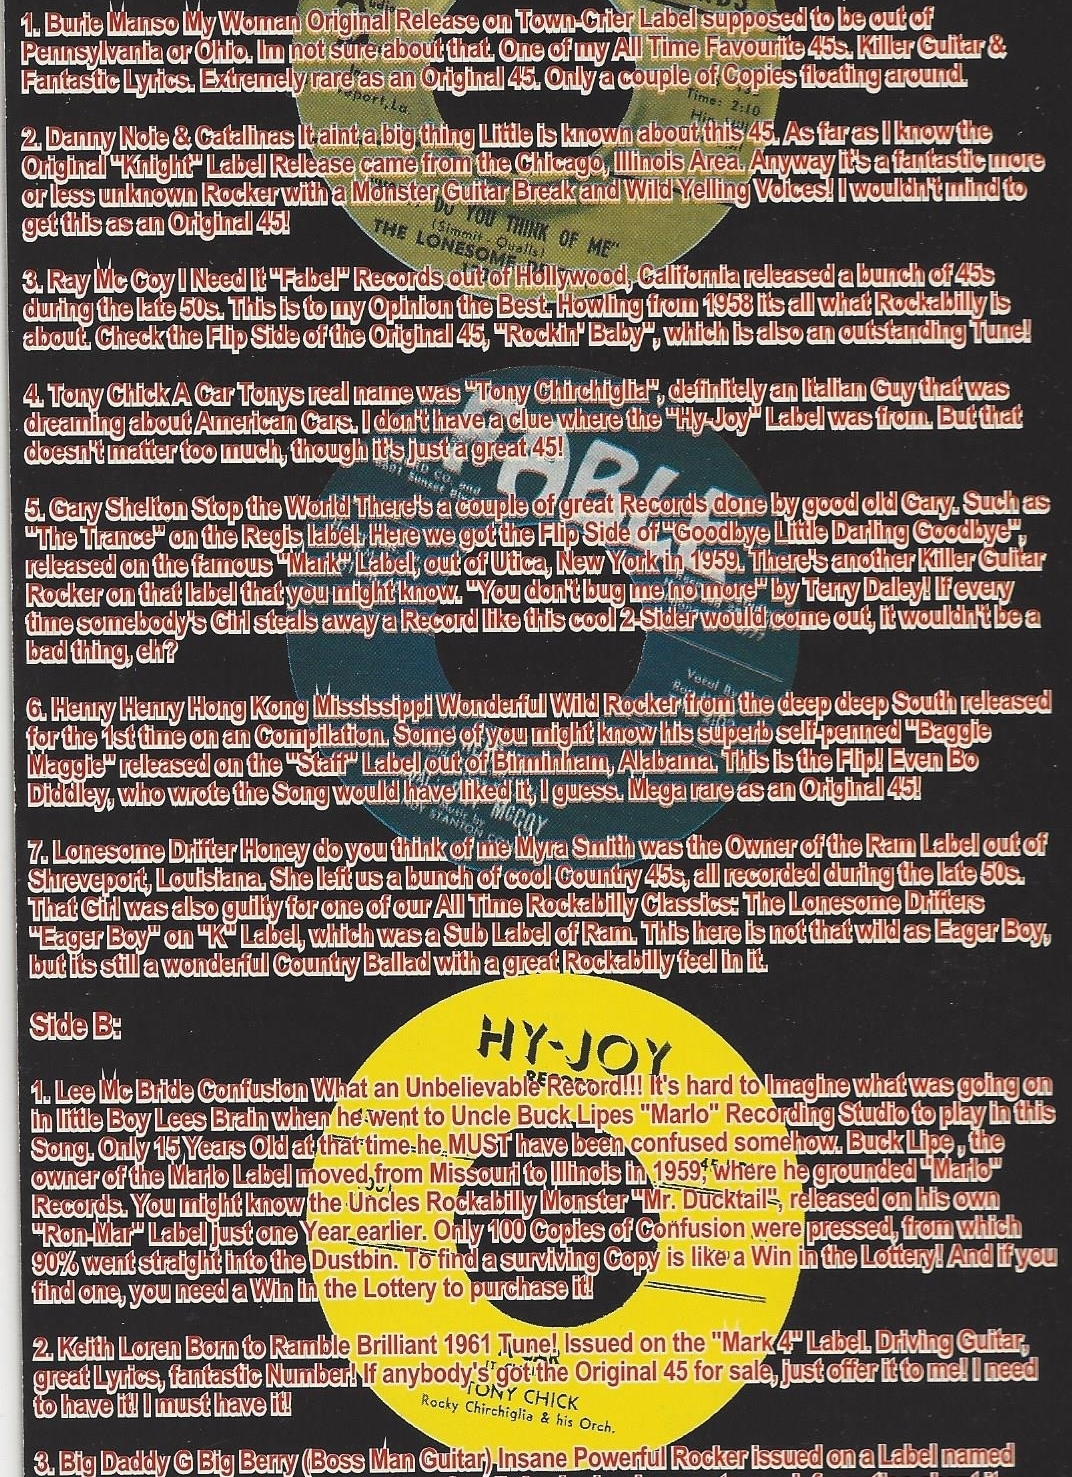 1. Burie Manso My Woman Original Release on Town-Crier Label supposed to be out of
Pennsylvania or Ohio. Im not sure about that. One of my All Time Favourite 45s. Killer Guitar &
Fantastic Lyrics. Extremely rare as an Original 45. Only a couple of Copies floating around.
2. Danny Noie & Catalinas It aint a big thing Little is known about this 45. As far as I know the
Original "Knight" Label Release came from the Chicago, Illinois Area. Anyway it's a fantastic more
or less unknown Rocker with a Monster Guitar Break and Wild Yelling Voices! I wouldn't mind to
get this as an Original 45!
3. Ray Mc Coy I Need It "Fabel" Records out of Hollywood, California released a bunch of 45s
during the late 50s. This is to my Opinion the Best. Howling from 1958 its all what Rockabilly is
about. Check the Flip Side of the Original 45, "Rockin' Baby", which is also an outstanding Tune!
4. Tony Chick A Car Tonys real name was "Tony Chirchiglia", definitely an Italian Guy that was
dreaming about American Cars. I don't have a clue where the "Hy-Joy" Label was from. But that
doesn't matter too much, though it's just a great 45!
5. Gary Shelton Stop the World There's a couple of great Records done by good old Gary. Such as
"The Trance" on the Regis label. Here we got the Flip Side of "Goodbye Little Darling Goodbye",
released on the famous "Mark" Label, out of Utica, New York in 1959. There's another Killer Guitar
Rocker on that label that you might know. "You don't bug me no more" by Terry Daley! If every
time somebody's Girl steals away a Record like this cool 2-Sider would come out, it wouldn't be a
bad thing, eh?
6. Henry Henry Hong Kong Mississippi Wonderful Wild Rocker from the deep deep South released
for the 1st time on an Compilation. Some of you might know his superb self-penned "Baggie
Maggie" released on the "Staff" Label out of Birminham, Alabama. This is the Flip! Even Bo
Diddley, who wrote the Song would have liked it, I guess. Mega rare as an Original 45!
7. Lonesome Drifter Honey do you think of me Myra Smith was the Owner of the Ram Label out of
Shreveport, Louisiana. She left us a bunch of cool Country 45s, all recorded during the late 50s.
That Girl was also guilty for one of our All Time Rockabilly Classics: The Lonesome Drifters
"Eager Boy" on "K" Label, which was a Sub Label of Ram. This here is not that wild as Eager Boy,
but its still a wonderful Country Ballad with a great Rockabilly feel in it.
Side B:
1. Lee Mc Bride Confusion What an Unbelievable Record!!! It's hard to Imagine what was going on
in little Boy Lees Brain when he went to Uncle Buck Lipes "Marlo" Recording Studio to play in this
Song. Only 15 Years Old at that time he MUST have been confused somehow. Buck Lipe , the
owner of the Marlo Label moved from Missouri to Illinois in 1959, where he grounded "Marlo"
Records. You might know the Uncles Rockabilly Monster "Mr. Ducktail", released on his own
"Ron-Mar" Label just one Year earlier. Only 100 Copies of Confusion were pressed, from which
90% went straight into the Dustbin. To find a surviving Copy is like a Win in the Lottery! And if you
find one, you need a Win in the Lottery to purchase it!
2. Keith Loren Born to Ramble Brilliant 1961 Tune! Issued on the "Mark 4" Label. Driving Guitar,
great Lyrics, fantastic Number! If anybody's got the Original 45 for sale, just offer it to me! I need
to have it! I must have it!
3. Big Daddy G Big Berry (Boss Man Guitar) Insane Powerful Rocker issued on a Label named
Time: 2:10
DO YOU THINK OF ME"
(Simmit Qualls)
THE LONESOME
McCOY
HY-JOY
TONY CHICK
Rocky Chirchiglia & his Orch.